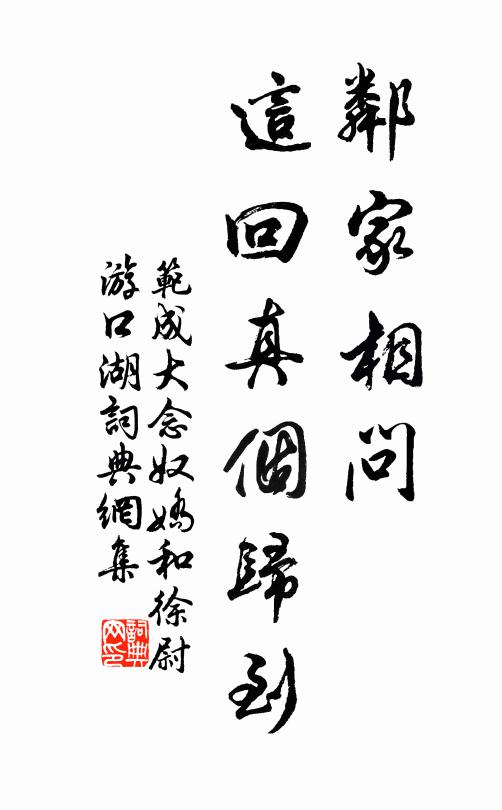 鄰家相問
這回真個歸到
範成大念奴嬌和徐尉
游口湖詞典網集
詞典
网印